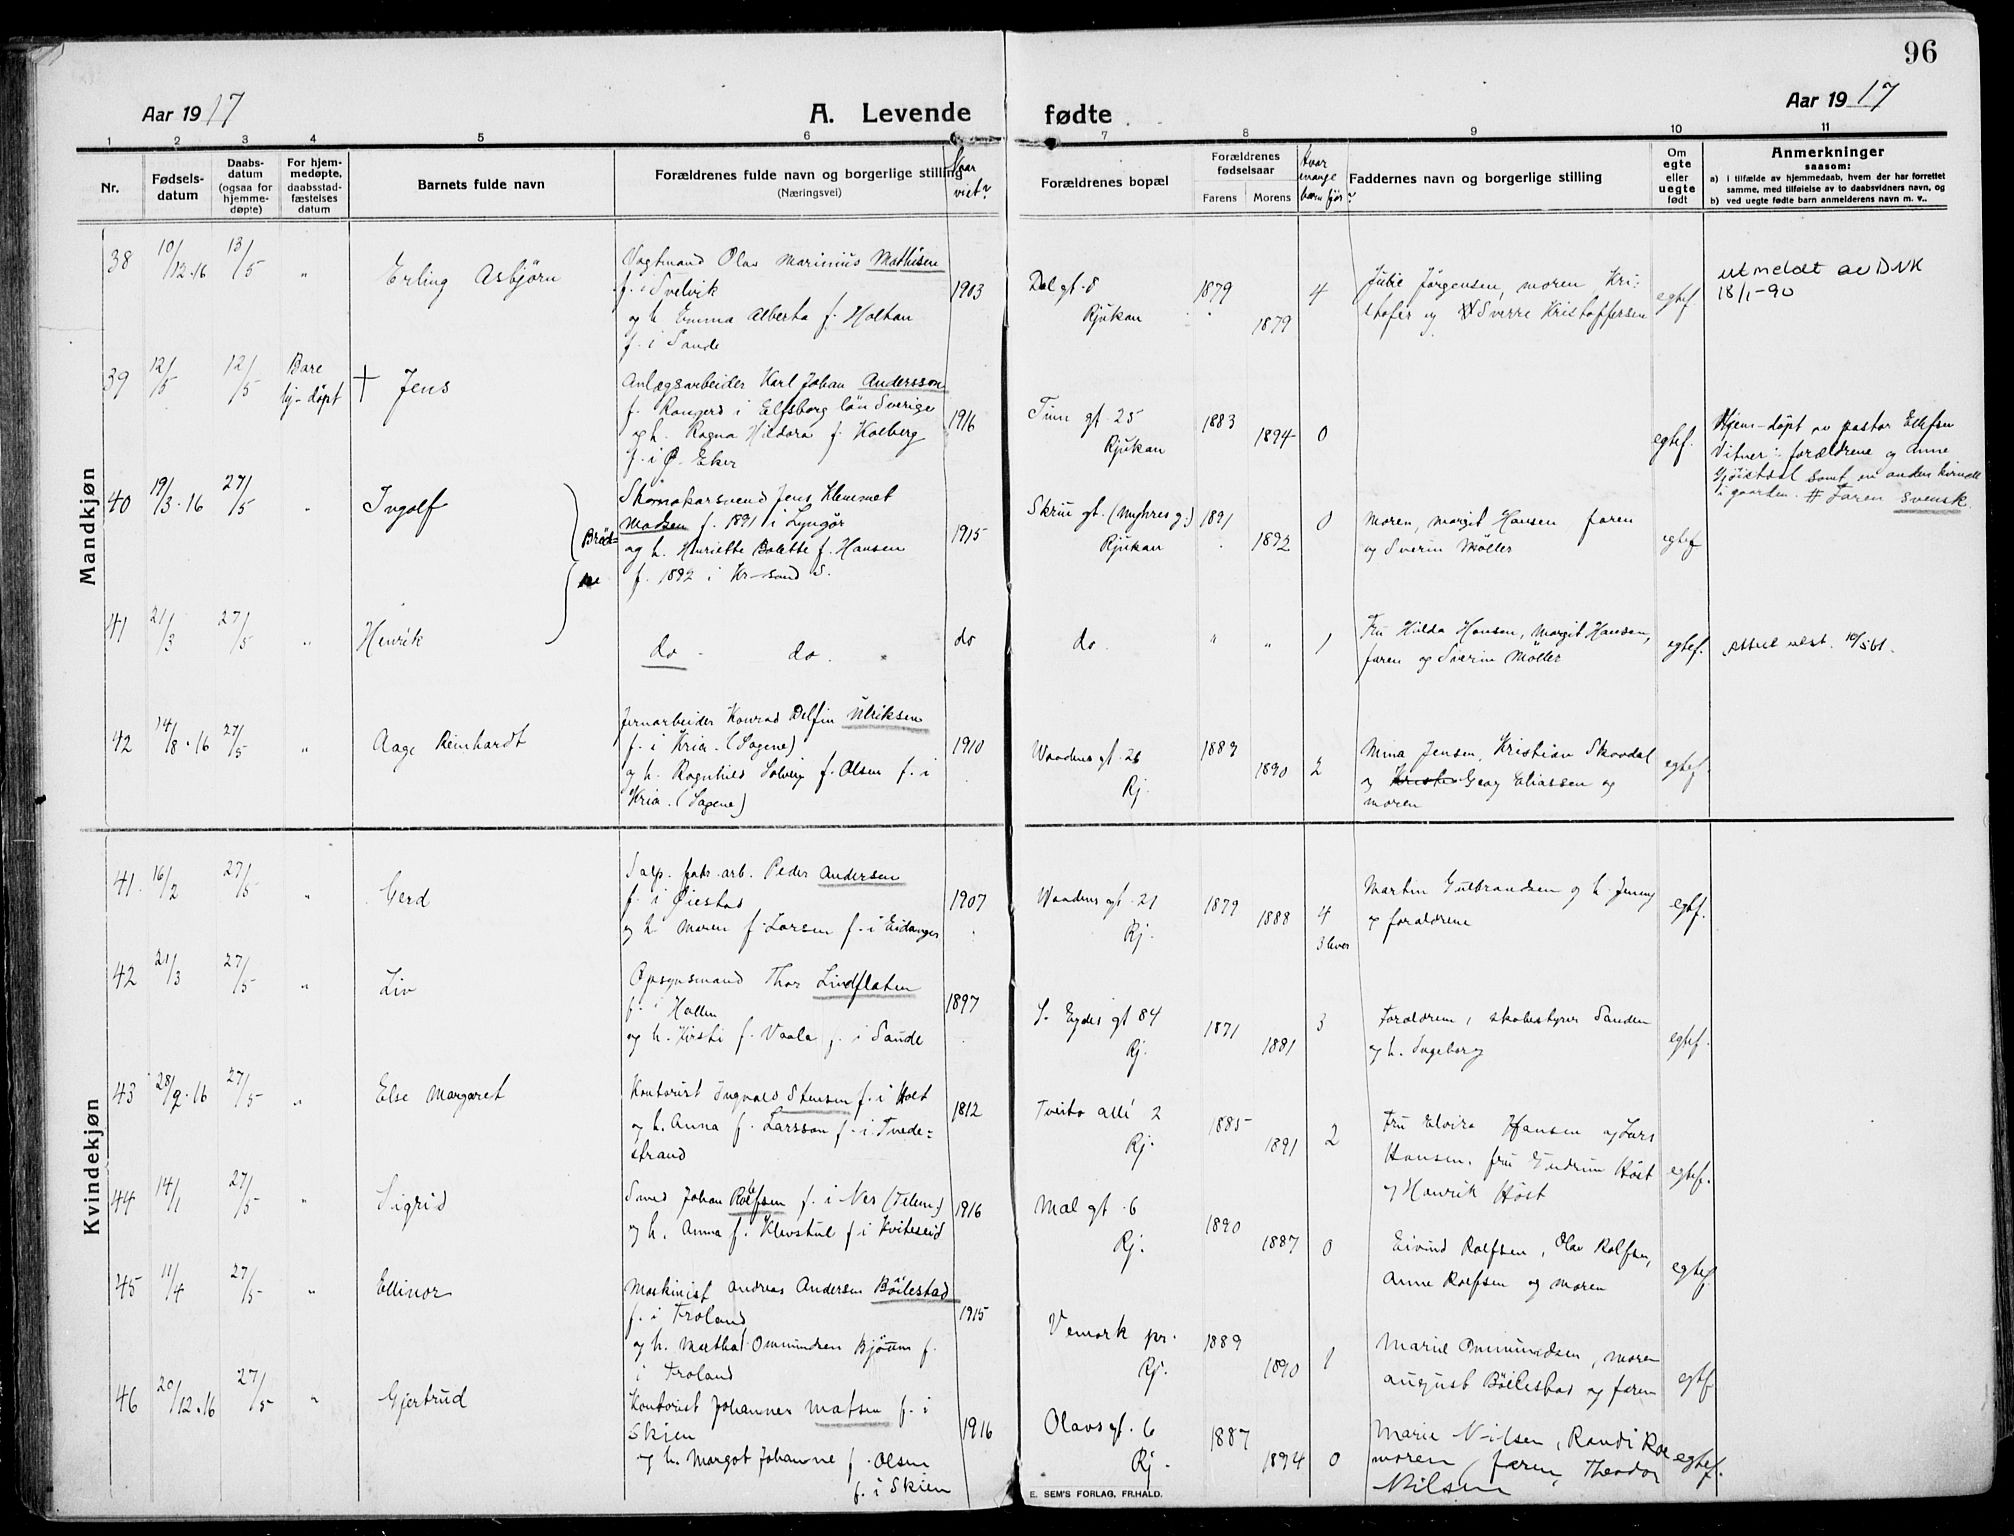 96
Aar 1917
A. Levende fødte.
Aar 1917
1 2 3 4 5 6 7 8 9 10 11
Nr.
Fødsels-
datum
Daabs-
datum
(ogsaa for
hjemme-
døpte)
For hjem-
medøpte,
daabsstad-
fæstelses
datum
Barnets fulde navn
Forældrenes fulde navn og borgerlige stilling
(Næringsvei)
Naar
viet?
Forældrenes bopæl
Forældrenes
fødselsaar
Farens Morens
Hvor
mange
barn før?
Faddernes navn og borgerlige stilling
Om
egte
eller
uegte
født
Anmerkninger
saasom:
a) i tilfælde av hjemmedaab, hvem der har forrettet
samme, med tilføielse av to daabsvidners navn, og
b) ved uegte fødte barn anmelderens navn m. v..
Mandkjøn
38 10/12.16 13/5 " Erling Asbjørn
Vagtmand Olav Marinius Mathisen
f. i Svelvik
og h. Emma Alberta f. Holtan
f. i Sande
1903
Dal gt. 8
Rjukan
1879
1879
4
Jørgensen, moren, Kri-
stofer og Sverre Kristoffersen
egtef
utmeldt av DNK
18/1-90
39 12/5 12/5 Bare
hj-døpt
† Jens
Anlægsarbeider Karl Johan Andersson
f. i Elfsborg län Sverige
og h. Ragna Hildora f. Kolberg
f. i Ø. Eker
1916
Tinn gt. 25
Rjukan
1883
1894
0
egtef.
Hjem-døpt av pastor Ellefsen
Vitner: forældrene og Anne
samt en anden kvinde
i gaarden. # Faren svensk.
40 19/3.16 27/5 " Ingolf
Brød=
re
Skomakersvend Jens Klemmet
Madsen f. 1891 i Lyngør
og h. Henriette Bolette f. Hansen
f. 1892 i Kr-sand S.
1915
Skriu gt. (Myhres g.)
Rjukan
1891
1892
0
Moren, Margit Hansen faren
og Sverin Møller
egtef
41 21/3 27/5 " Henrik
do - do.
do
do.
" "
1
Fru Hilda Hansen, Margit Hansen,
faren og Sverin Møller
egtef.
attest utst. 10/5 61.
42 14/8.16 27/5 " Aage Reinhardt
Jernarbeider Konrad Delfin Ulriksen
f. i Kria. (Sagene)
og h. Ragnhild Solveig f. Olsen f. i
Kria. (Sagene)
1910
Waadens gt. 26
Rj.
1889
1890
2
Mina Jensen, Kristian Skovdal
og Georg Eliassen og
moren
egtef.
Kvindekjøn
41. 16/2 27/5 " Gerd
Salp. fabr. arb. Peder Andersen
f. i Øiestad
og h. Maren f. Larsen f. i Eidanger
1907
Waadens gt. 21
Rj.
1879
1888
4
3 lever
Martin Gulbrandsen og h. Jenny
og foraldrene
egtef.
42 21/3 27/5 " Liv
Opsynsmand Thor Lindflaten
f. i Hollen
og h. Kirsti f. Vaala f. i Saude
1897
S. Eydes gt 84
Rj.
1871
1881
3
Foraldrene, skobestyrer Sanden
og h. Ingeborg
egtef.
43 28/9.16 27/5 " Else Margaret
Kontorist Ingvald Stensen f. i Holt
og h. Anna f. Larsson f. i Tvede=
strand
1812
Tveito allé 2
Rj.
1885
1891
2
Fru Elvira Hansen og Lars
Hansen, fru Gudrun Høst
og Henrik Høst
egtef.
44 14/1 27/5 " Sigrid
Smed Johan Rolfsen f. i Nes (Telem.)
og h. Anna f. Klevstul f. i Kviteseid
1916
Mæl gt. 6
Rj.
1890
1887
0
Eivind Rolfsen, Olav Rolfsen,
Anne Rolfsen og moren
egtef.
45 11/4 27/5 " Ellinor
Maskinist Andreas Andersen Bøilestad
f. i Froland
og h. Martha Ommundsen Bjørum f.
i Froland
1915
Vemork pr.
Rj.
1889
1890
1
Marie Ommundsen, moren
August Bøilestad og faren
egtf
46 20/12.16 27/5 " Gjertrud
Kontorist Johannes Matsen f. i
Skien
og h. Margot Johanne f. Olsen
f. i Skien
1916
Olavs gt. 6
Rj.
1887
1894
0
Marie Nilsen, Randi Roe
moren, faren, Theodor
Nilsen
egtef.
E. SEM'S FORLAG, FR.HALD.